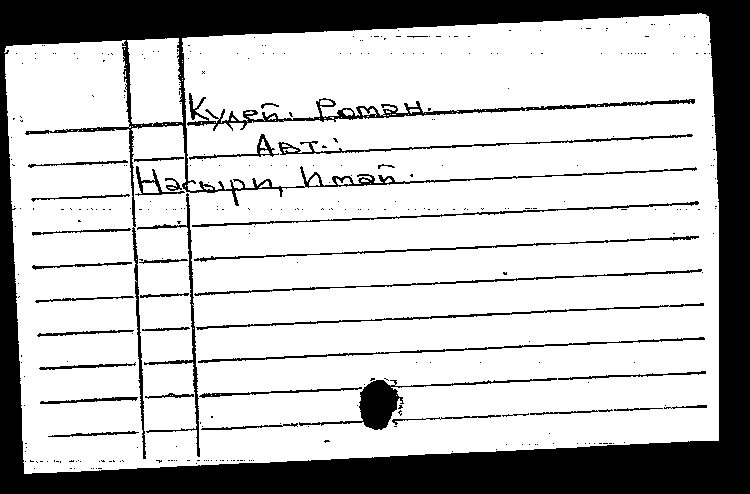 Кудей. Роман.
Авт.:
Насыри, Имай.